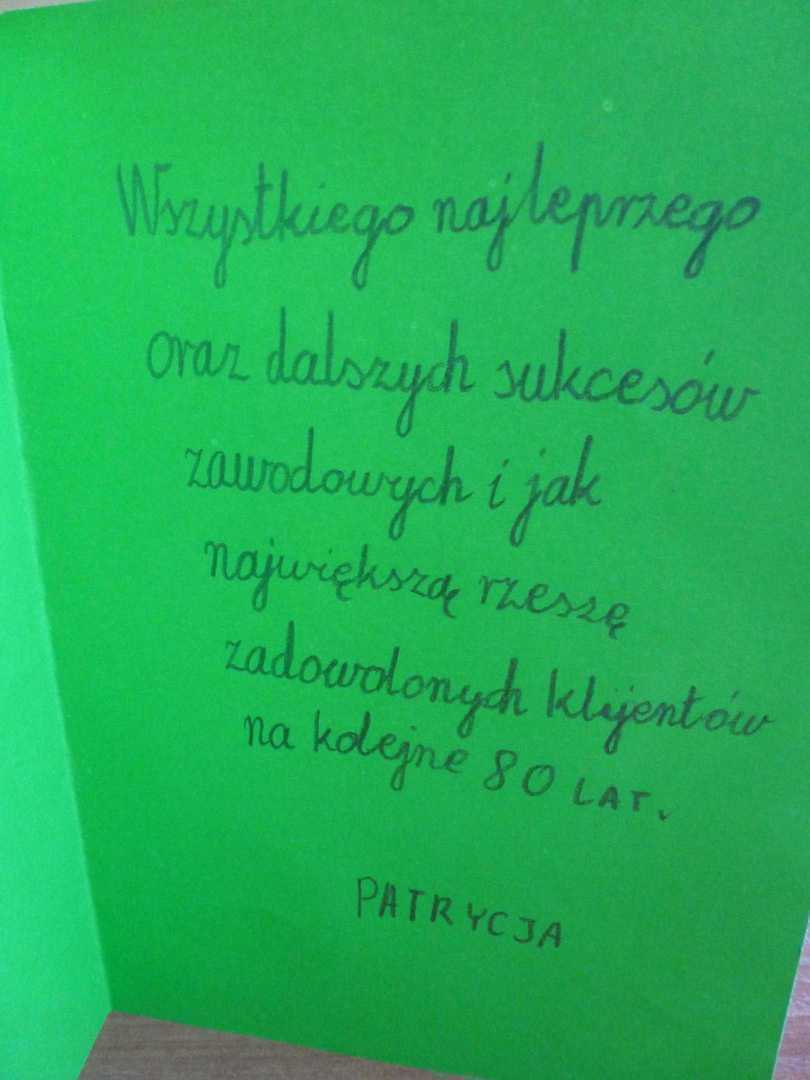 Wszystkiego najleprzego
oraz dalszych sukcesów
zawodowych i jak
największą rzeszę
zadowolonych klijentów
na kolejne 80 LAT.
PATRYCJA